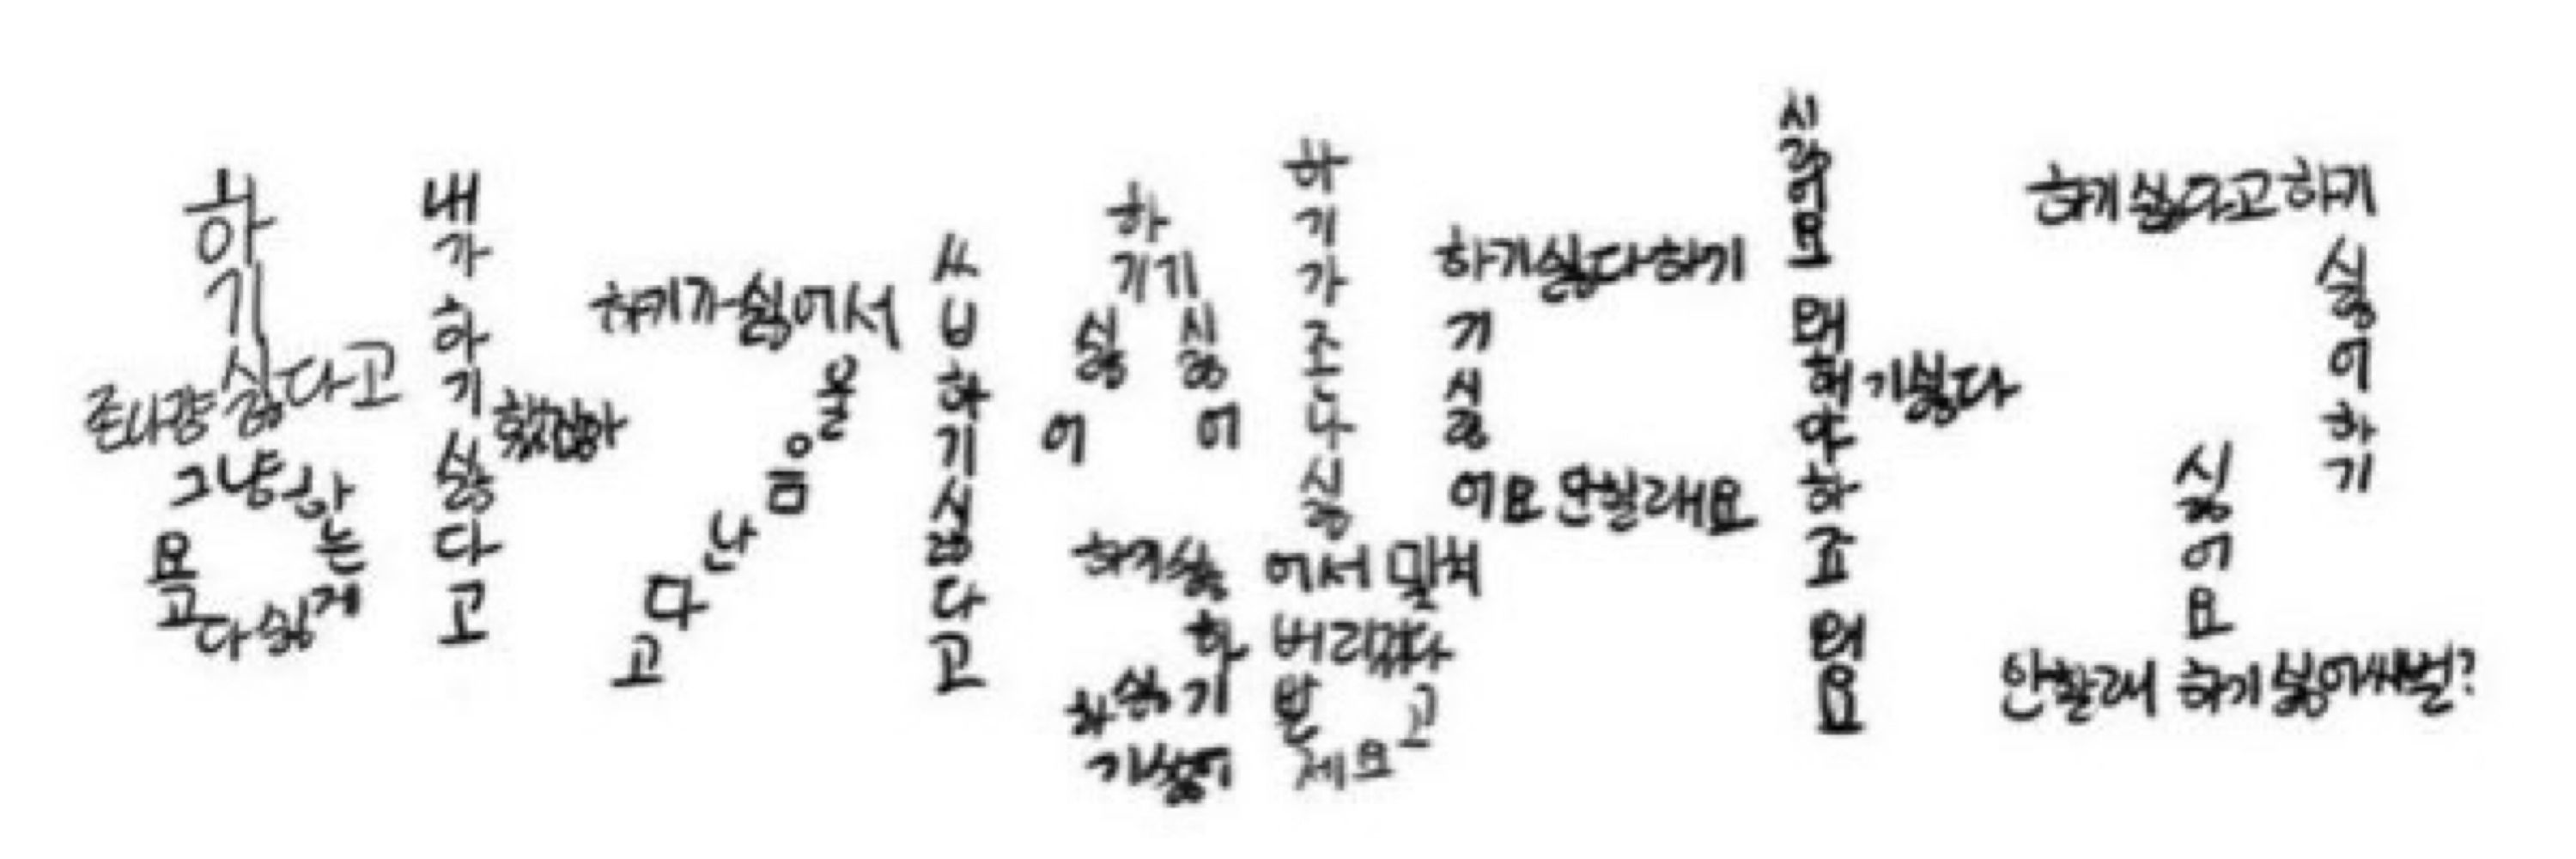 하기싫다고
존나걍
그냥 하는게 싫다고요
내가하기싫다고
했잖아
하기가싫어서
울음난다고
ㅆㅂ하기싫다고
하기싫어
기싫어
하기싫
하기싫
하기싫어
하기가조나싫어서 미쳐
버리겠다고
제발요
하기싫다하기
기싫
어요 안할래요
시러요 왜해야하죠 왜요
기싫다
하기싫다고하기
싫어하기
싫어요
안할래 하기싫어씨벌?